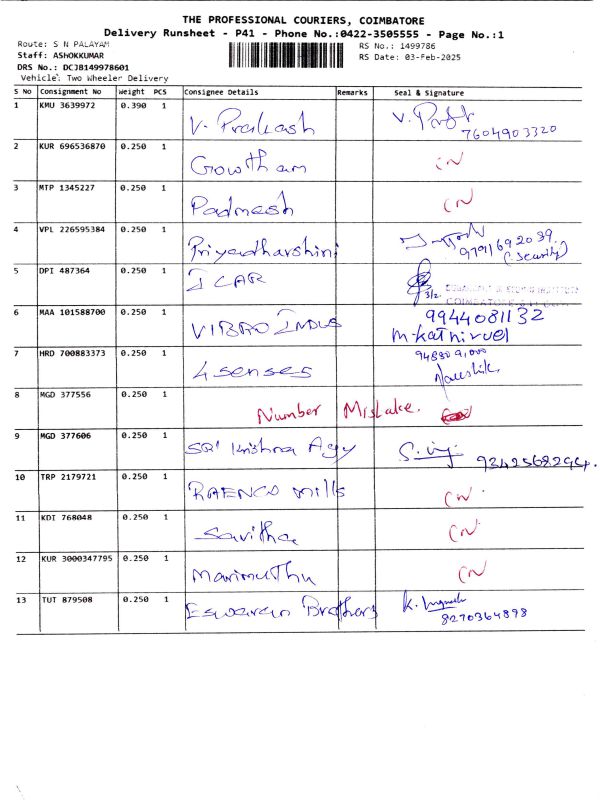 THE PROFESSIONAL COURIERS, COIMBATORE
Delivery Runsheet - P41 - Phone No.:0422-3505555 - Page No.:1
Route: S N PALAYAM
RS No.: 1499786
Staff: ASHOKKUMAR
RS Date: 03-Feb-2025
DRS No.: DCJB149978601
Vehicle: Two Wheeler Delivery
S No Consignment No Weight PCS Consignee Details Remarks Seal & Signature
1 KMU 3639972 0.390 1 V. Prakash V.
7604903320
2 KUR 696536870 0.250 1 Gowtham CN
3 MTP 1345227 0.250 1 Padmesh CN
4 VPL 226595384 0.250 1 Priyadharshini
9791692039.
(Security)
5 DPI 487364 0.250 1 ICAR
3/2.
6 MAA 101588700 0.250 1 VIBRO INDUS 9944081132
M-Kathirvel
7 HRD 700883373 0.250 1 4 senses
Naushik
8 MGD 377556 0.250 1 Number Mistake.
9 MGD 377606 0.250 1 SRI Krishna Agy
9342568294.
10 TRP 2179721 0.250 1 RAENCO Mills CN
11 KDI 768048 0.250 1 Savitha CN
12 KUR 3000347795 0.250 1 Marimuthu CN
13 TUT 879508 0.250 1 Eswaran Brothers K.
8270364898